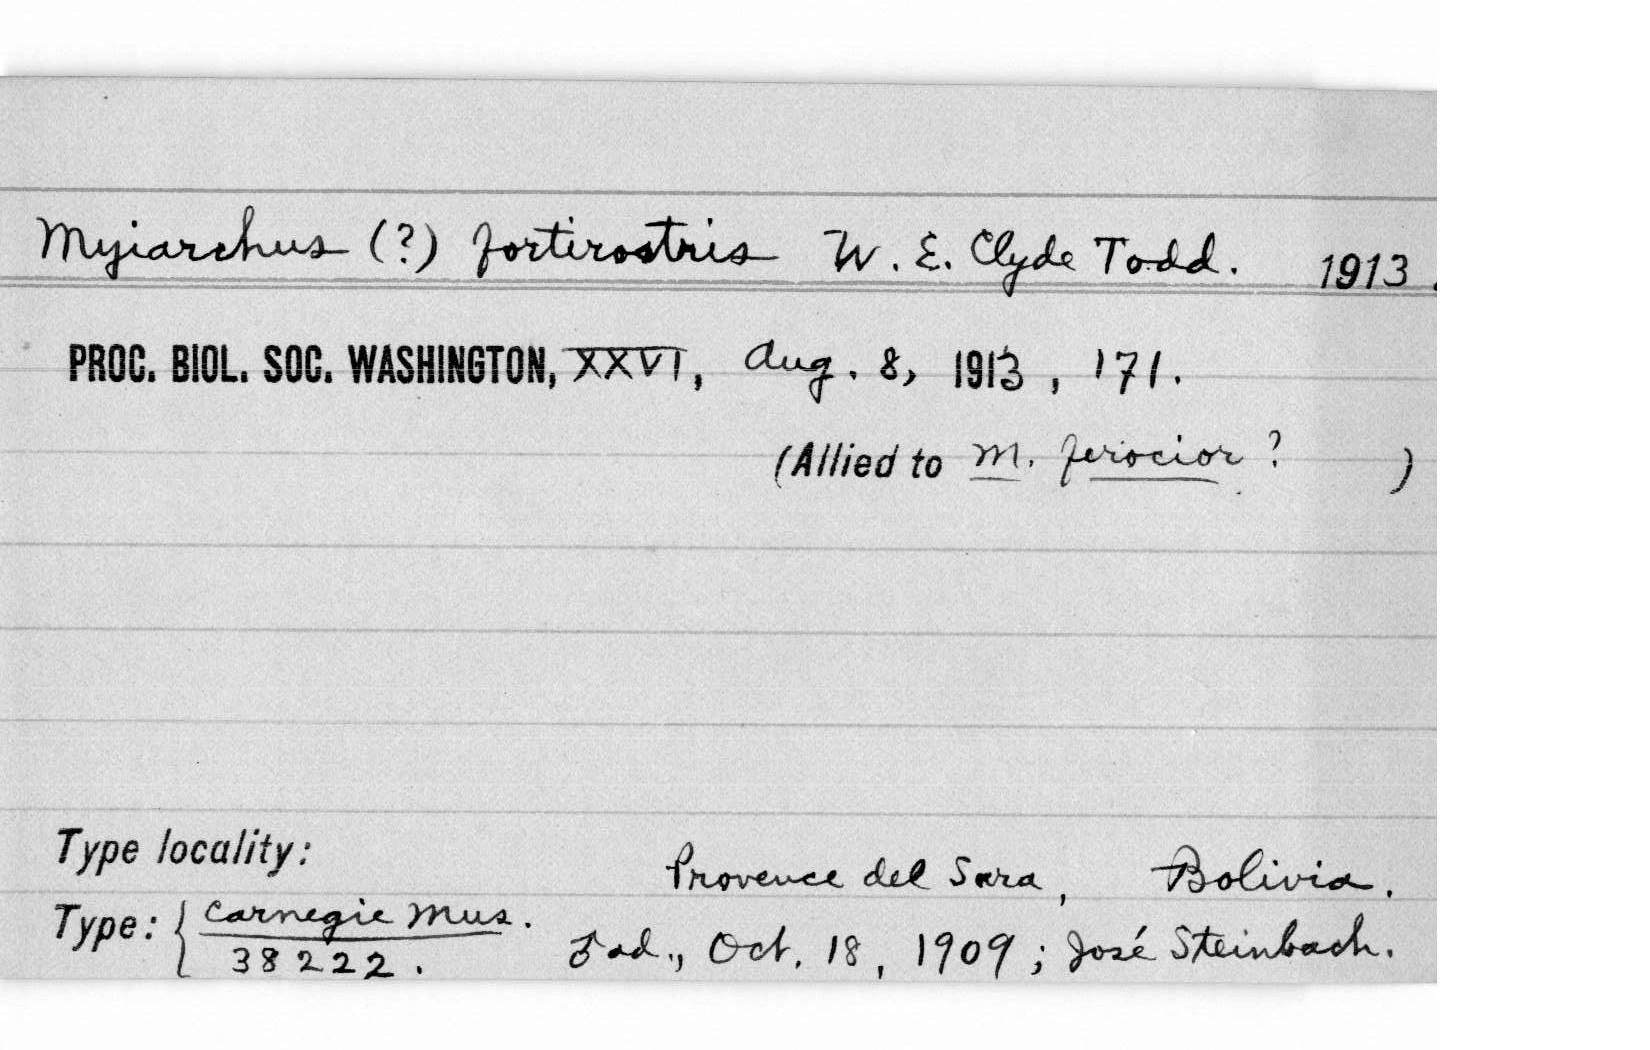 Myiarchus (?) fortirostris W. E. Clyde Todd. 1913.
PROC. BIOL. SOC. WASHINGTON, XXVI, Aug. 8, 1913, 171.
(Allied to M. ferocior ? )
Type locality: Provence del Sara, Bolivia.
Type: { Carnegie Mus. 38222. ♂ ad., Oct. 18, 1909; José Steinbach.